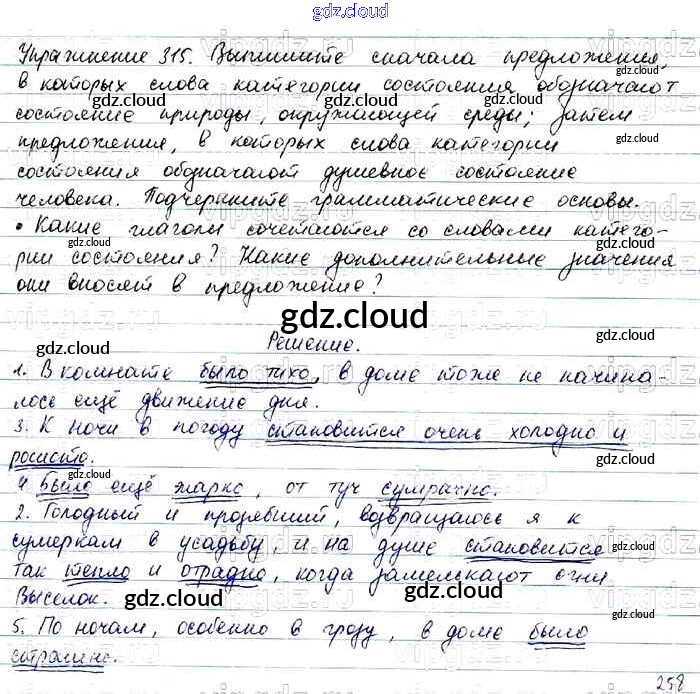 gdz.cloud
Упражнение 315. Выпишите сначала предложения,
в которых слова категории состояния обозначают
состояние природы, окружающей среды; затем
предложения, в которых слова категории
состояния обозначают душевное состояние
человека. Подчеркните грамматические основы.
• Какие глаголы сочетаются со словами катего-
рии состояния? Какие дополнительные значения
они вносят в предложение?
gdz.cloud
Решение.
1. В комнате было тихо, в доме тоже не начина-
лось ещё движение дня.
3. К ночи в погоду становится очень холодно и
росисто.
4 Было ещё жарко, от туч сумрачно.
2. Голодный и прозябший, возвращаюсь я к
сумеркам в усадьбу, и на душе становится
так тепло и отрадно, когда замелькают огни
Выселок.
gdz.cloud
5. По ночам, особенно в грозу, в доме было
страшно.
258